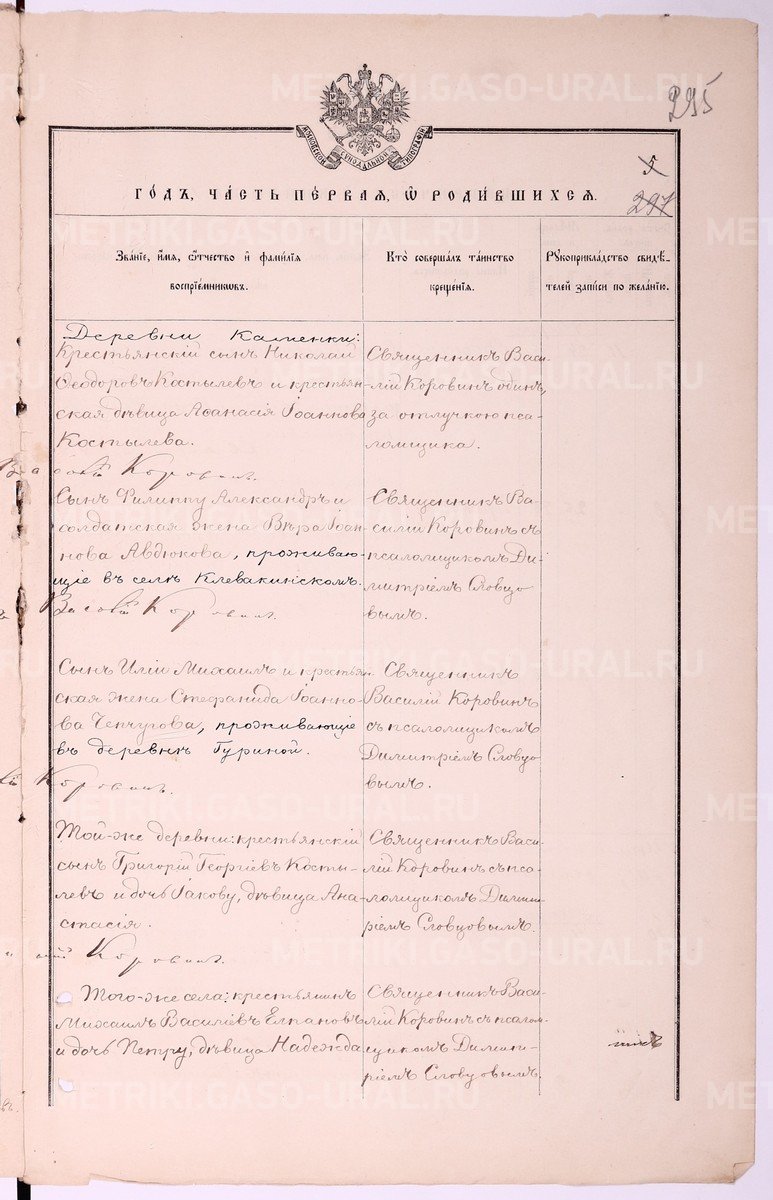 295
МОСКОВСКОЙ СѴНОДАЛЬНОЙ ТИПОГРАФІИ
5
ГО́ДЪ, ЧА́СТЬ ПЕ́РВАЯ, Ѡ РОДИ́ВШИХСЯ.
297
Зва́нїе, и҆́мя, ѻ҆́тчество и҆ фами́лїя
воспрїе́мникѡвъ.
Кто̀ соверша́лъ та́инство
креще́нїя.
Рꙋкоприкла́дство свидѣ́-
телей за́писи по жела́нїю.
Деревни Каменки:
Крестьянскій сынъ Николай
Ѳеодоровъ Костылевъ и крестьян-
ская дѣвица Аѳанасія Іоаннова
Костылева.
Священникъ Васи-
лій Коровинъ одинъ,
за отлучкою пса-
ломщика.
Василій Коровинъ.
Сынъ Филиппу Александръ и
солдатская жена Вѣра Іоан-
нова Авдюкова, проживаю-
щіе въ селѣ Клевакинскомъ.
Священникъ Ва-
силій Коровинъ съ
псаломщикомъ Ди-
митріемъ Словцо
вымъ.
Василій Коровинъ.
Сынъ Иліи Михаилъ и крестьян-
ская жена Стефанида Іоанно-
ва Чепчугова, проживающіе
въ деревнѣ Гуриной.
Священникъ
Василій Коровинъ
съ псаломщикомъ
Димитріемъ Словцо
вымъ.
Коровинъ.
Той-же деревни: крестьянскій
сынъ Григорій Георгіевъ Косты-
левъ и дочь Іакову, дѣвица Ана-
стасія.
Священникъ Васи-
лій Коровинъ съ пса-
ломщикомъ Димит-
ріемъ Словцовымъ.
Коровинъ.
Того-же села: крестьянинъ
Михаилъ Василіевъ Елпановъ
и дочь Петру, дѣвица Надежда
Священникъ Васи-
лій Коровинъ съ псалом-
щикомъ Димит-
ріемъ Словцовымъ.
METRIKI.GASO-URAL.RU